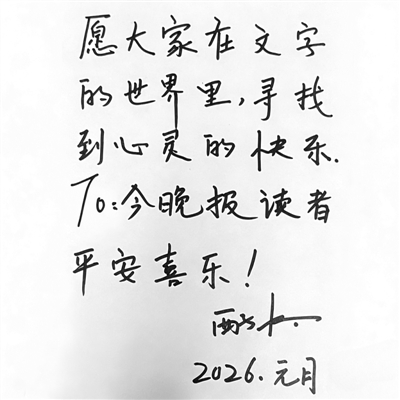 愿大家在文字
的世界里,寻找
到心灵的快乐.
To:今晚报读者
平安喜乐!
2026.元月